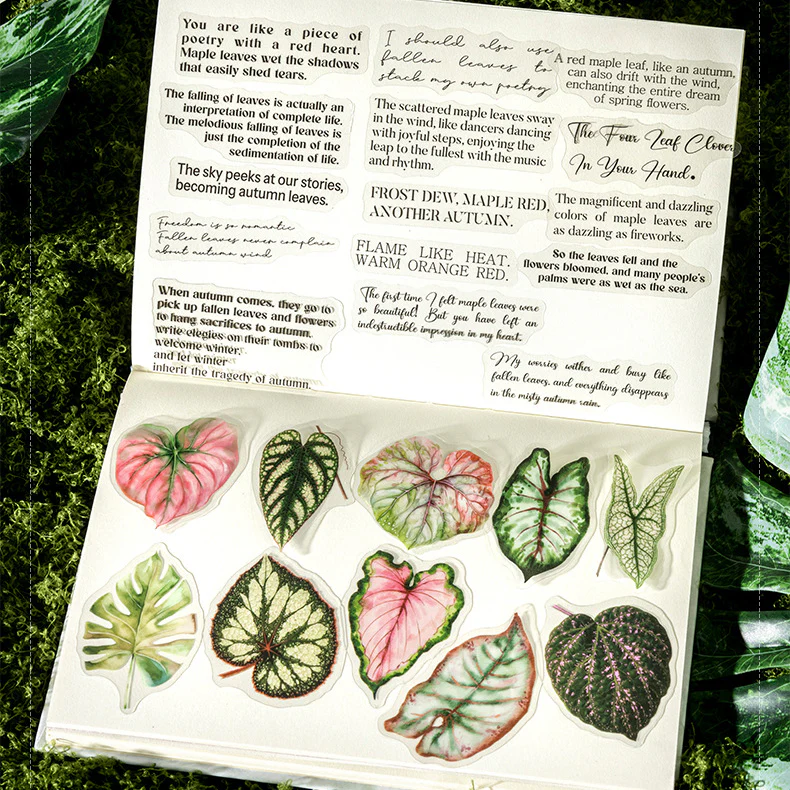 You are like a piece of
poetry with a red heart.
Maple leaves wet the shadows
that easily shed tears.
The falling of leaves is actually an
interpretation of complete life.
The melodious falling of leaves is
just the completion of the
sedimentation of life.
The sky peeks at our stories,
becoming autumn leaves.
Freedom is so romantic
Fallen leaves never complain
about autumn wind
When autumn comes, they go to
pick up fallen leaves and flowers
to hang sacrifices to autumn,
write elegies on their tombs to
welcome winter,
and let winter
inherit the tragedy of autumn.
I should also use
fallen leaves to
stack my own poetry
The scattered maple leaves sway
in the wind, like dancers dancing
with joyful steps, enjoying the
leap to the fullest with the music
and rhythm.
FROST DEW, MAPLE RED,
ANOTHER AUTUMN.
FLAME LIKE HEAT,
WARM ORANGE RED.
The first time I felt maple leaves were
so beautiful! But you have left an
indestructible impression in my heart.
A red maple leaf, like an autumn,
can also drift with the wind,
enchanting the entire dream
of spring flowers.
The Four Leaf Clover
In Your Hand.
The magnificent and dazzling
colors of maple leaves are
as dazzling as fireworks.
So the leaves fell and the
flowers bloomed, and many people's
palms were as wet as the sea.
My worries wither and bury like
fallen leaves, and everything disappears
in the misty autumn rain.